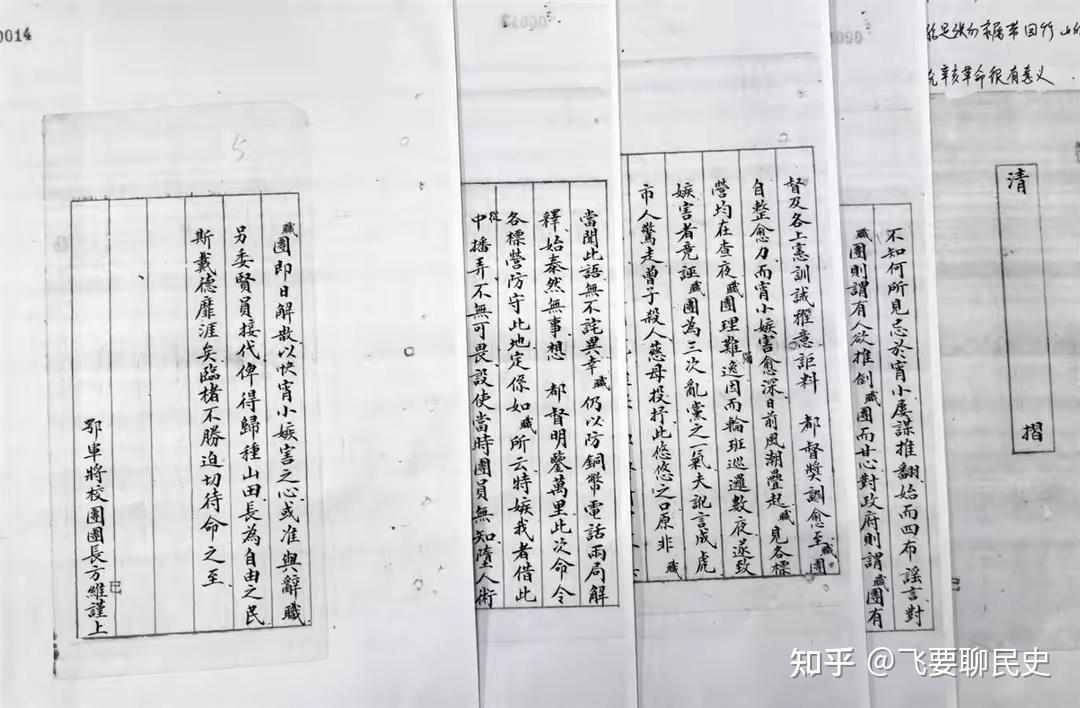 家屬帶回竹山的
究辛亥革命很有意义
清摺
不知何所見忌於宵小屢謀推翻始而四布謠言對
職團則謂有人欲推倒職團而甘心對政府則謂職團有
督及各上憲訓誡擢意詎料 都督獎訓愈至職團
自整愈力而宵小嫉害愈深日前風潮疊起職見各標
營均在查夜職團理難獨逸因而輪班巡邏數夜遂致
嫉害者竟誣職團為三次亂黨之一氣夫訛言成虎
市人驚走曾子殺人慈母投抒此悠悠之口原非職
當聞此語無不詫異幸職仍以防銅幣電話兩局解
釋始泰然無事想 都督明鑒萬里此次命令
各標營防守此地定係如職所云特嫉我者借此
從中播弄不無可畏設使當時團員無知墮人術
0014
5
職團即日解散以快宵小嫉害之心或准與辭職
另委賢員接代俾得歸種山田長為自由之民
斯戴德靡涯矣臨楮不勝迫切待命之至
鄂軍將校團團長方維謹上
知乎 @飞要聊民史